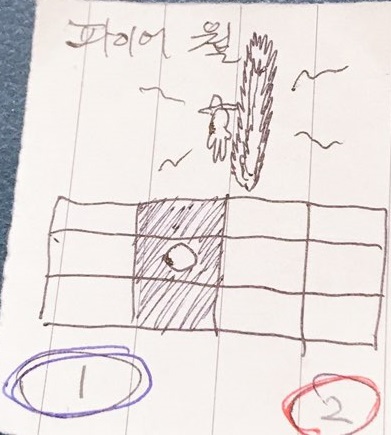 파이어 월
1
2